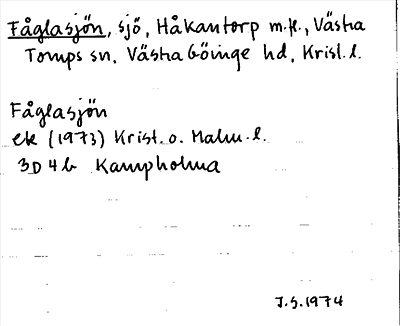 Fåglasjön, sjö, Håkantorp m.fl., Västra
Torups sn, Västra Göinge hd, Krist. l.
Fåglasjön
ek (1973) Krist. o. Malm. l.
3D 4b Kampholma
J.S. 1974